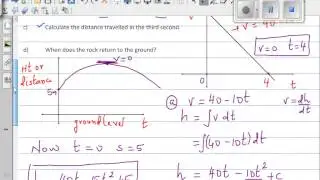 c) Calculate the distance travelled in the third second.
d) When does the rock return to the ground?
v=0
v = 40
v=0 t=4
0 4 t
Ht or
distance
5m
ground level t
(a) v = 40-10t
v = dh/dt
h = ∫v dt
= ∫(40-10t)dt
Now t=0 s=5
h = 40t - 10t²/2 + c